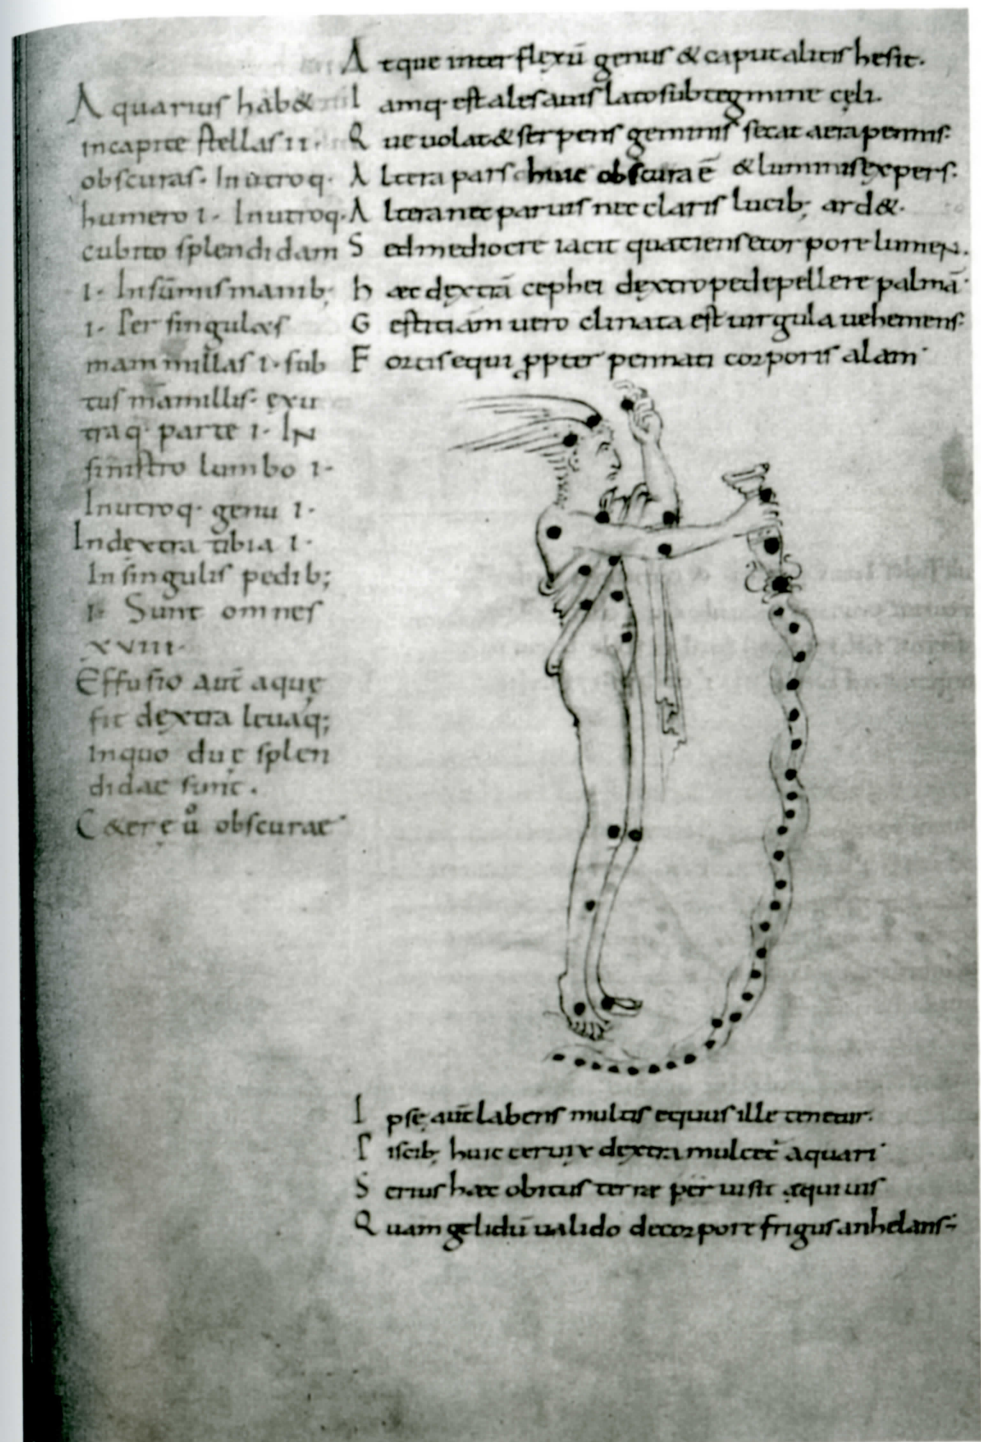 Aquarius hab&
in capite stellas II·
obscuras· In utroq·
humero I· In utroq·
cubito splendidam
I· In sūmis manib;
I· Per singulas
mammillas I· sub
tus māmillis· ex u
traq· parte I· IN
sinistro lumbo I·
In utroq· genu I·
In dextra tibia I·
In singulis pedib;
I· Sunt omnes
XVIII·
Effusio aut̄ aquę
fit dextra leuaq;
In quo duę splen
didae sunt·
C&erę ů obscurae
Atque inter flexū genus & caput alitis hesit·
Iamq· est ales auis lato sub tegmine cęli·
Que uolat & serpens geminis secat aera pennis·
Altera pars huic obscura ē & luminis expers·
Altera nec paruis nec claris lucib; ard&·
Sed mediocre iacit quatiens e corpore lumen·
Hęc dextrā cephei dextro pede pellere palmā
Gestit iam uero clinata est ungula uehemens·
Fortis equi ꝓpter pennati corporis alam·
Ipsę aut̄ labens multis equus ille tenetur·
Piscib; huic ceruix dextra mulcet̄ aquari·
Serius haec obitus terrae
Quam gelidū ualido de corpore frigus anhelans